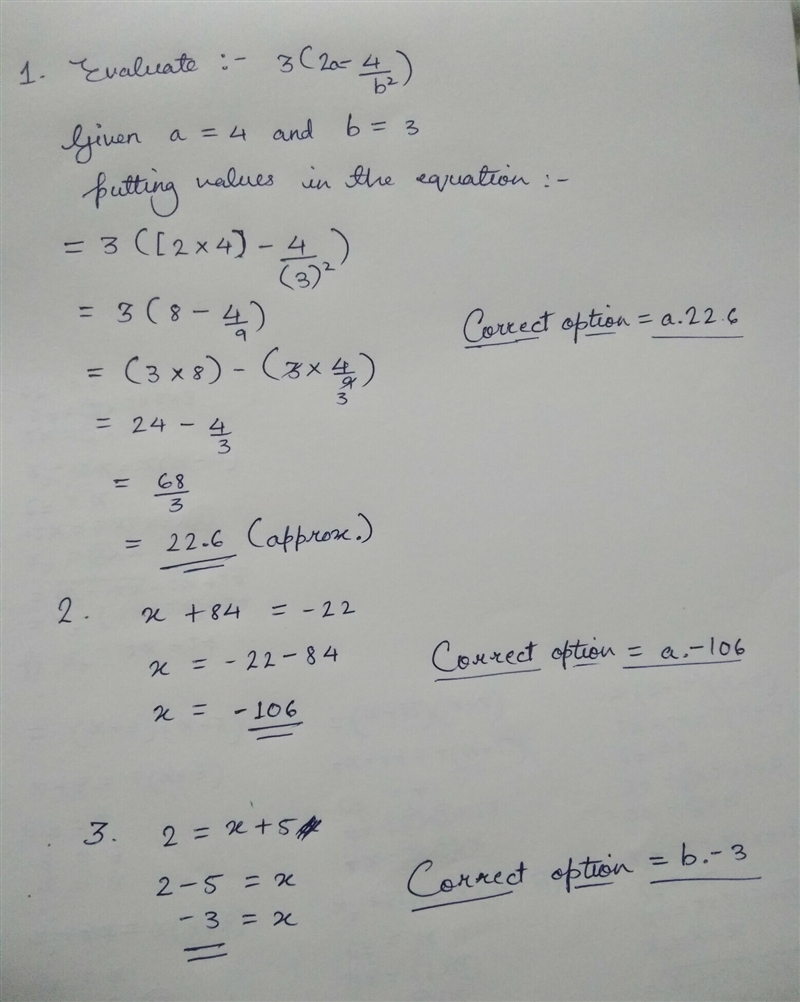 1. Evaluate :- 3(2a - 4/b²)
Given a = 4 and b = 3
putting values in the equation :-
= 3([2×4] - 4/(3)²)
= 3(8 - 4/9)
Correct option = a.22.6
= (3×8) - (3×4/9)
3
= 24 - 4/3
= 68/3
= 22.6 (approx.)
2. x + 84 = -22
x = -22-84
Correct option = a.-106
x = -106
3. 2 = x+5
2-5 = x
Correct option = b.-3
-3 = x